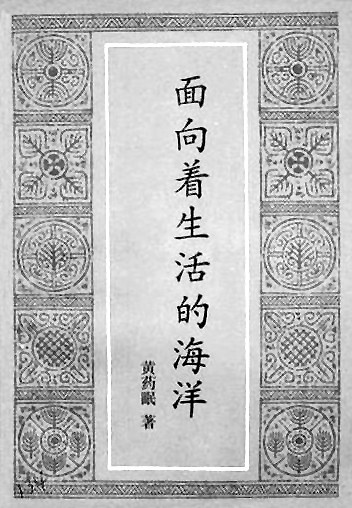 面向着生活的海洋
黄药眠 著